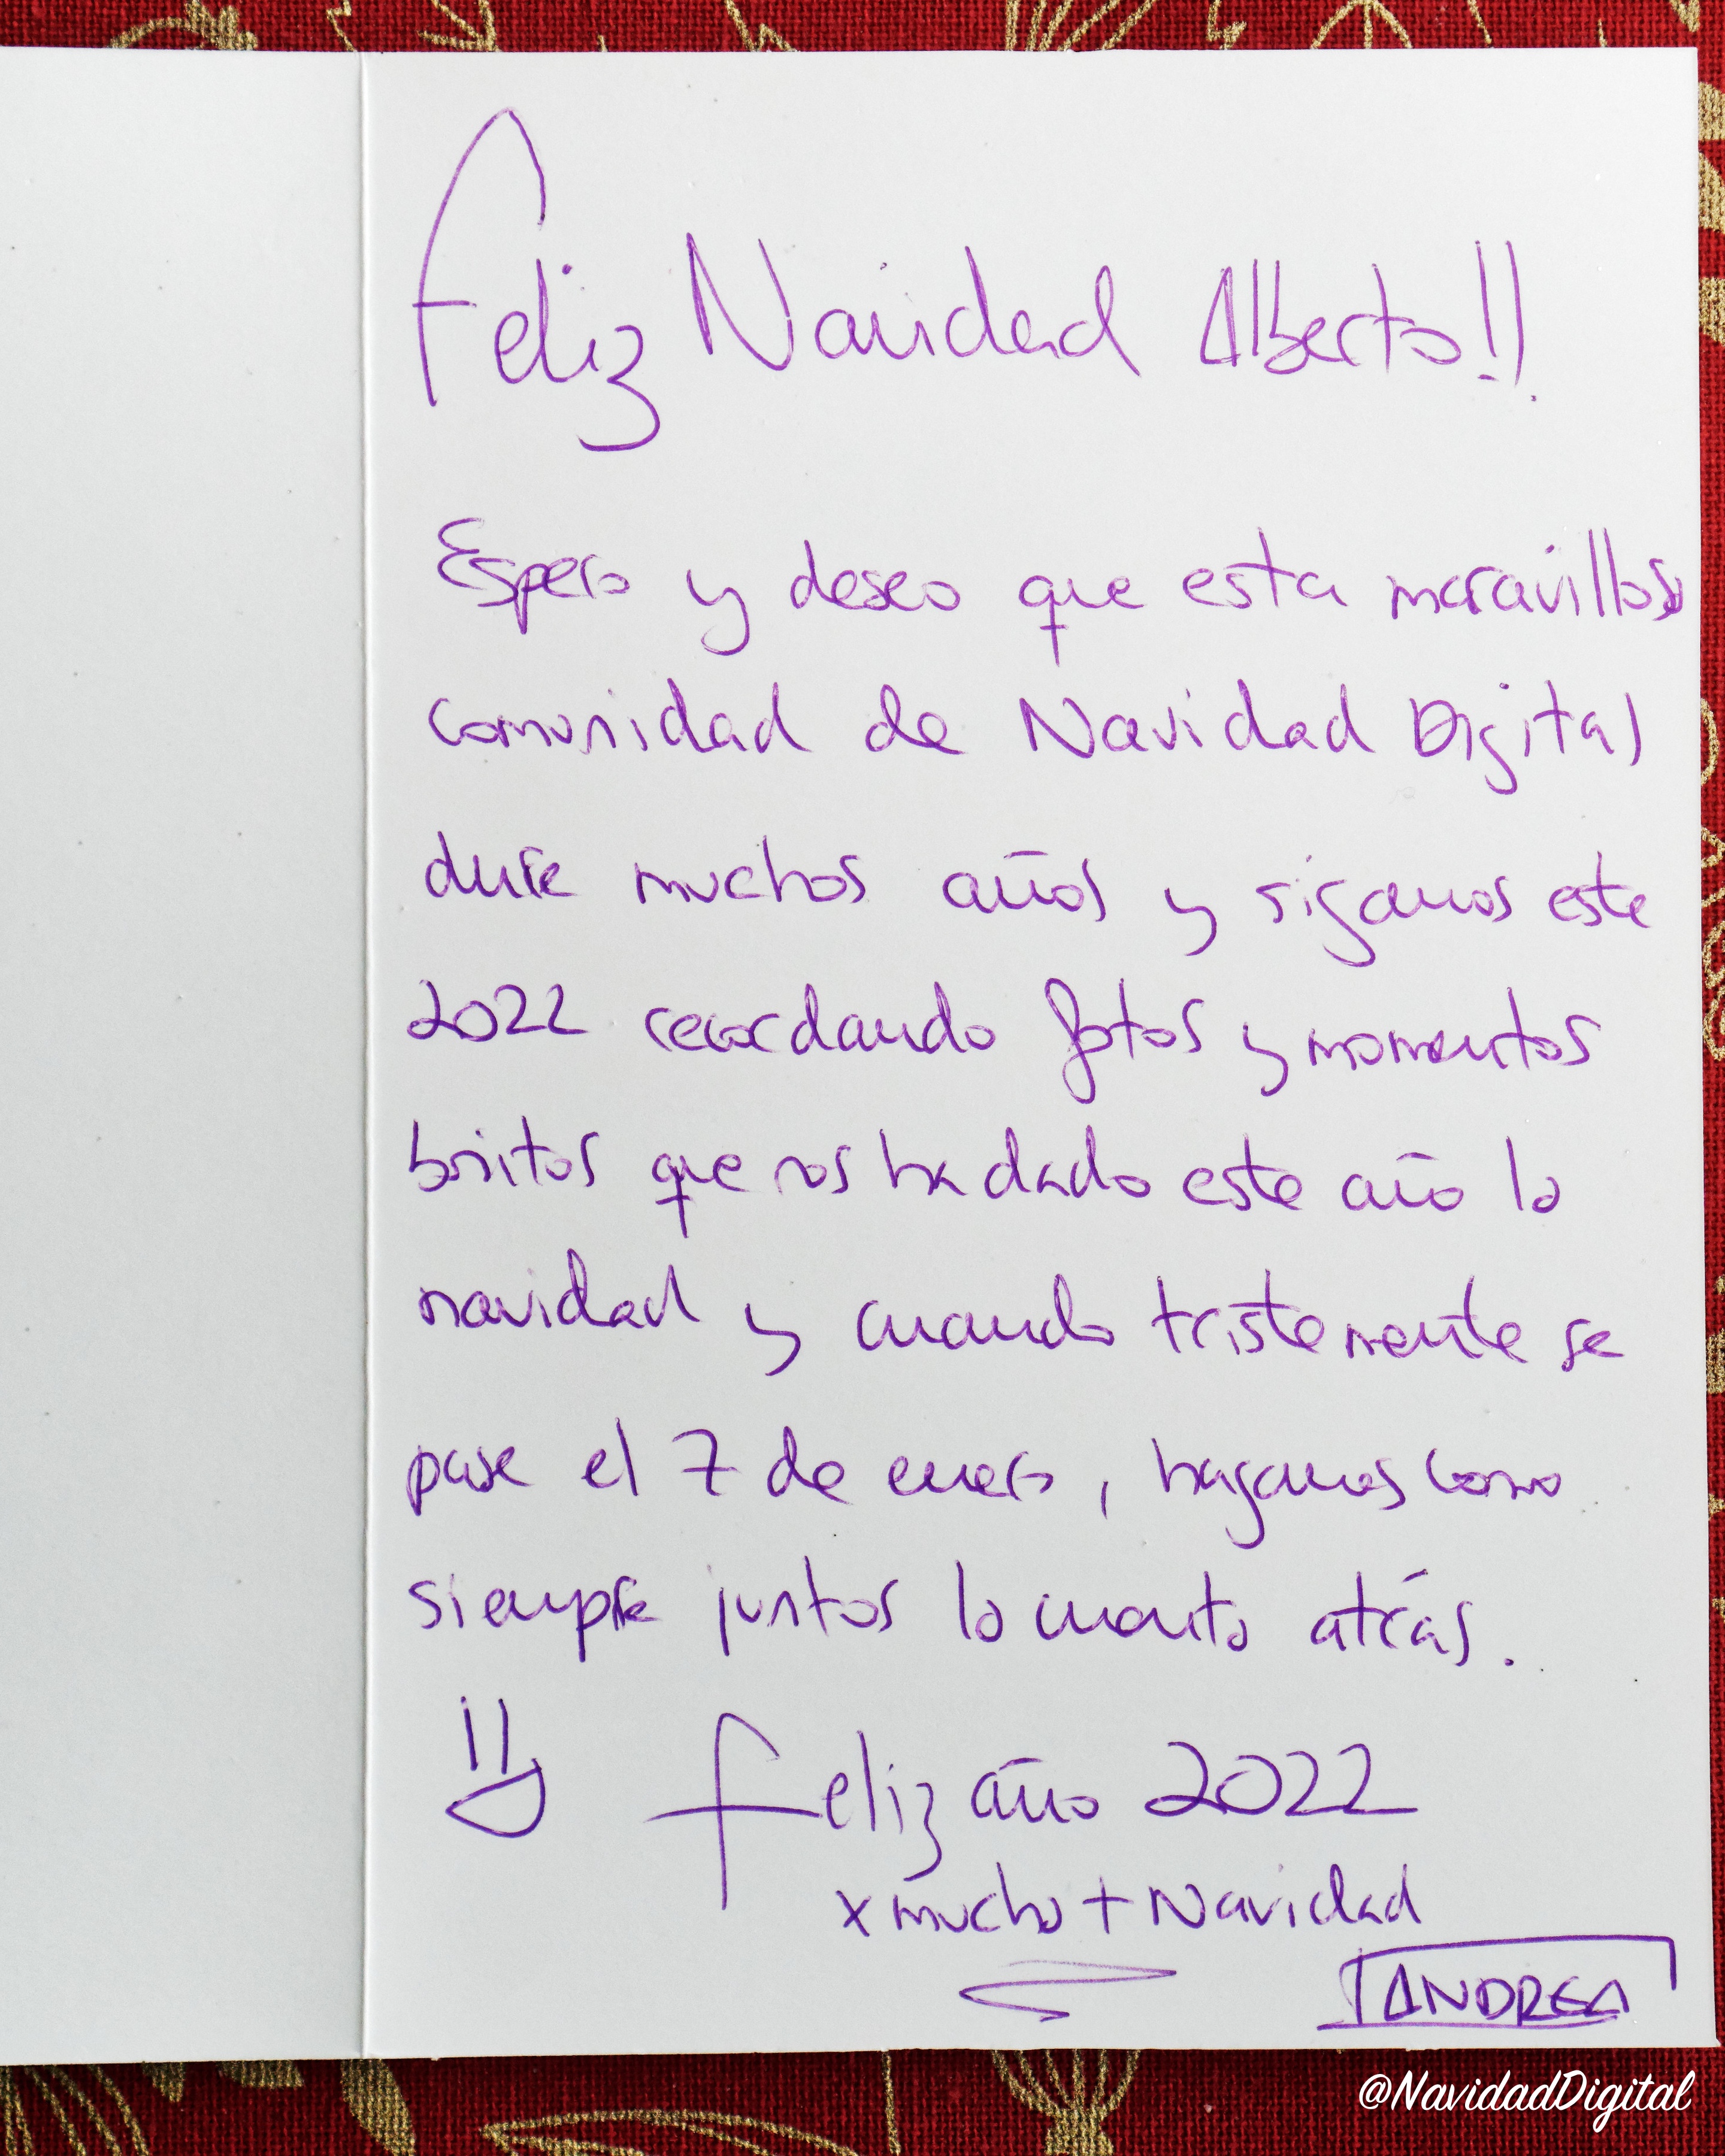 Feliz Navidad Alberto!!
Espero y deseo que esta maravillosa
comunidad de Navidad Digital
dure muchos años y sigamos este
2022 recordando fotos y momentos
bonitos que nos ha dado este año la
navidad y cuando tristemente se
pase el 7 de enero, hagamos como
siempre juntos la cuenta atrás.
Feliz año 2022
x mucho + Navidad
ANDREA
@NavidadDigital